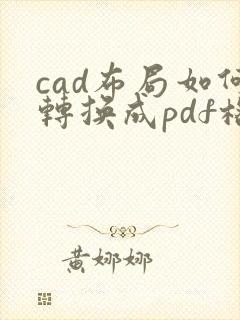 cad布局如何
轉換成pdf格
黃娜娜